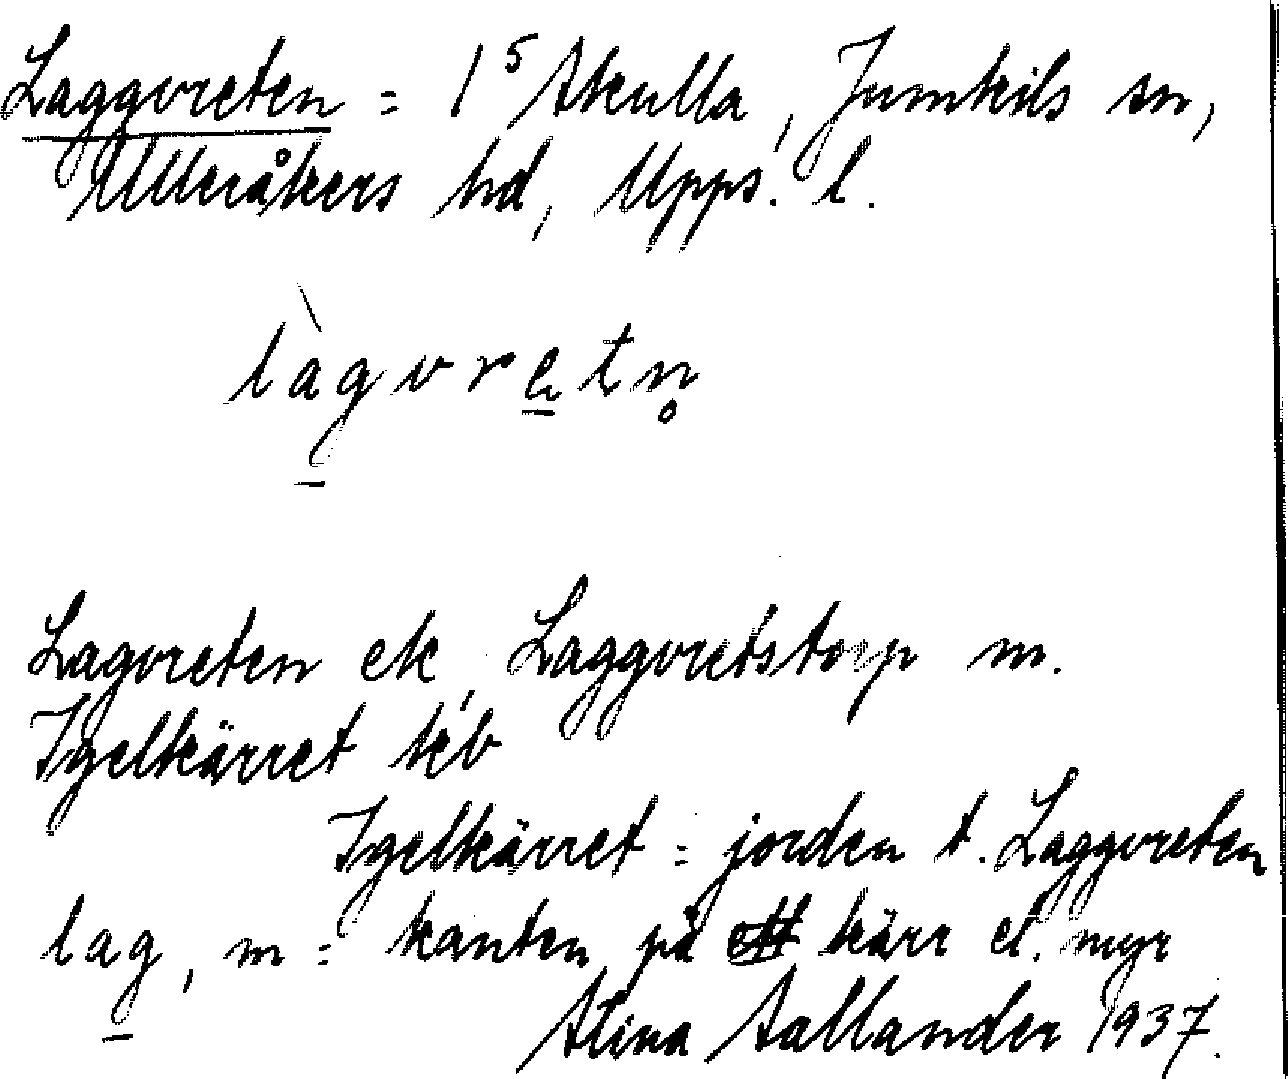 Laggvreten = 1⁵ Skulla, Jumkils sn,
Ulleråkers hd, Upps. l.
làg̱vre̱tn̥
Lagvreten ek, Laggvretstorp m.
Igelkärret kb
Igelkärret = jorden t. Laggvreten
lag̱, m = kanten på kärr el. myr
Stina Sallander 1937.